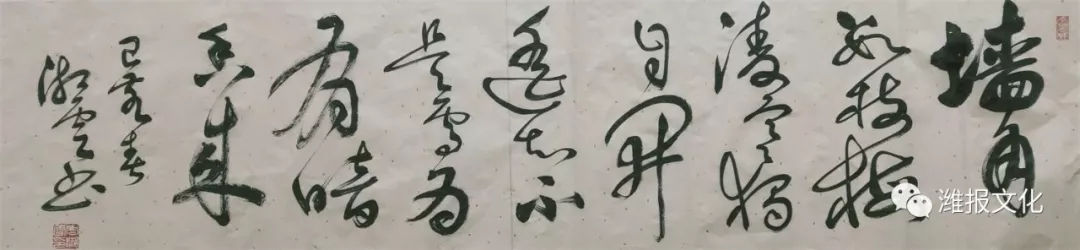 墙角
数枝梅
凌寒独
自開
遥知不
是雪为
有暗
香来
己亥春
云书
潍报文化